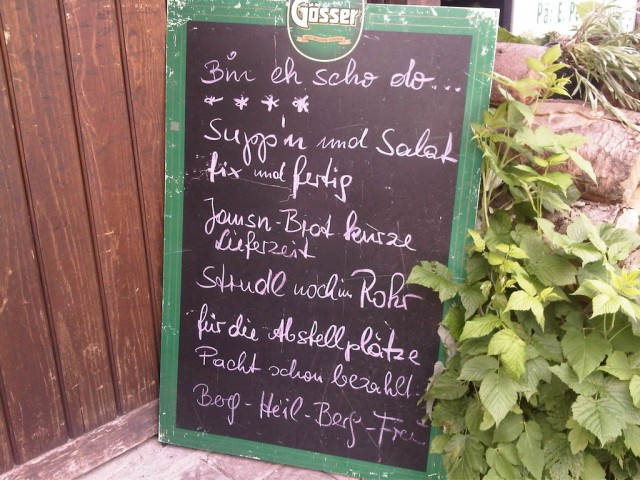 Gösser
Bin eh scho do...
* * * *
Supp'n und Salat
fix und fertig
Jausn-Brot kurze
Lieferzeit
Strudl noch im Rohr
für die Abstellplätze
Pacht schon bezahlt.
Berg-Heil-Berg-Frei